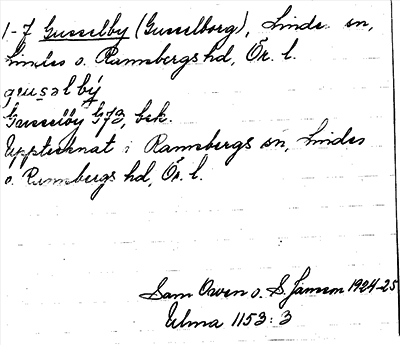 1-7 Gusselby (Gusselborg), Linde sn,
Lindes o. Ramsbergs hd, Ör. l.
gɯsəlbý
Gusselby G73, bek.
Upptecknat i Ramsbergs sn, Lindes
o. Ramsbergs hd, Ör. l.
Sam Owen o. S. Janson 1924-25
Ulma 1153:3